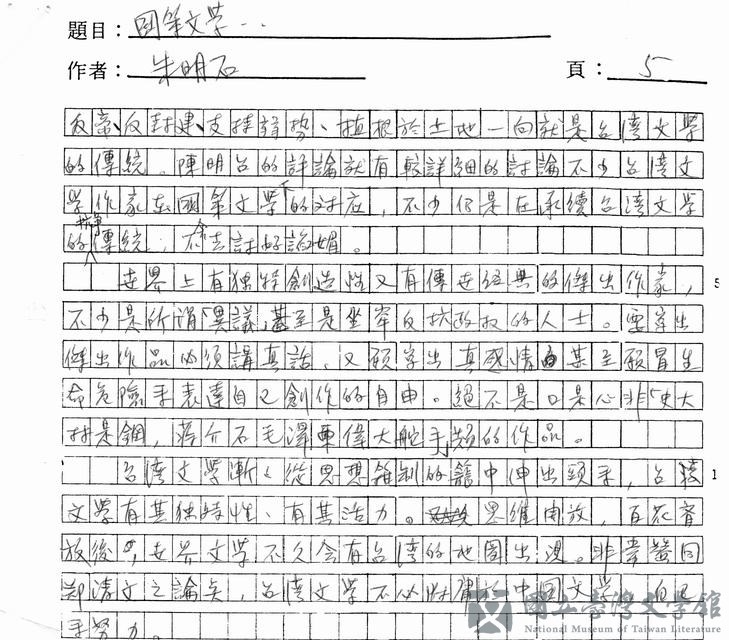 題目：國策文学..
作者：朱明石
頁：5
反帝、反封建、支持弱勢、植根於土地一向就是台湾文学
的傳統。陳明台的評論就有較詳細的討論不少台湾文
学作家在國策文学下的对应，不少仍是在承續台湾文学
的抗争傳統，不会去討好諂媚。
世界上有独特創造性又有傳世經典的傑出作家， 5
不少是所謂異議，甚至是坐牢反抗政权的人士。要写出
傑出作品必須講真話，又願写出真感情甚至願冒生
命危險來表達自己創作的自由。絕不是口是心非史大
林是鋼，蒋介石毛澤東偉大舵手類的作品。
台湾文学漸漸從思想箝制的籠中伸出頭來，台湾 1
文学有其独特性、有其活力。思維開放，百花齊
放後，世界文学不久会有台湾的地圖出現。非常贊同
郑清文之論矣，台湾文学不必附庸於中国文学，自己
來努力。
國立臺灣文學館
National Museum of Taiwan Literature